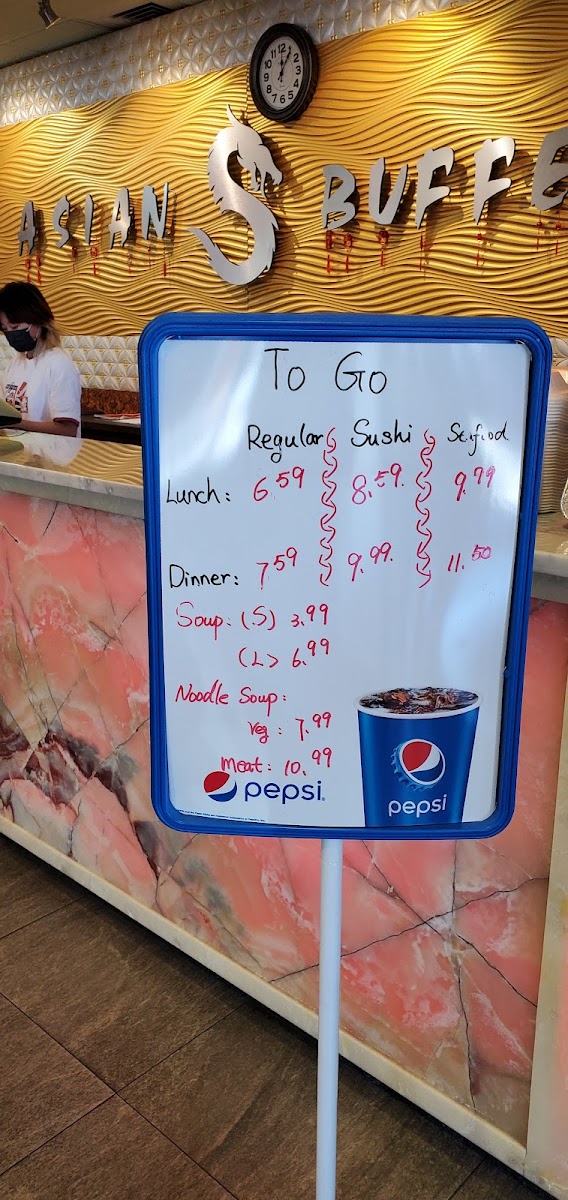 ASIAN BUFFE
12 1 2 3 4 5 6 7 8 9 10 11
To Go
Regular Sushi Seafood
Lunch: 6.59 8.59 9.99
Dinner: 7.59 9.99 11.50
Soup: (S) 3.99
(L) 6.99
Noodle Soup:
Veg: 7.99
Meat: 10.99
pepsi
pepsi